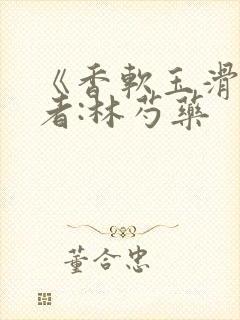 《香軟玉滑
者:林芍藥
董合忠